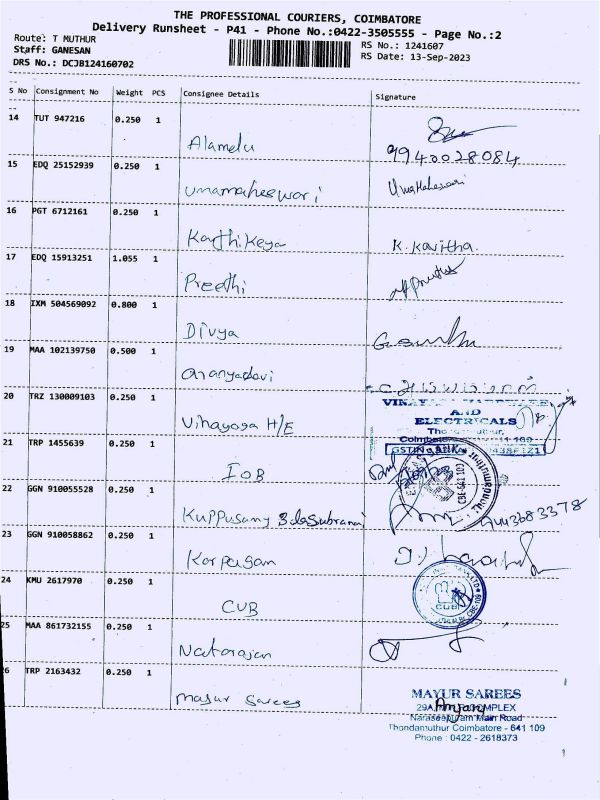 THE PROFESSIONAL COURIERS, COIMBATORE
Delivery Runsheet - P41 - Phone No.:0422-3505555 - Page No.:2
Route: T MUTHUR
RS No.: 1241607
Staff: GANESAN
RS Date: 13-Sep-2023
DRS No.: DCJB124160702
S No Consignment No Weight PCS Consignee Details Signature
14 TUT 947216 0.250 1
Alamelu 9940028084
15 EDQ 25152939 0.250 1
Umamaheswari UmaMaheswari
16 PGT 6712161 0.250 1
Karthikeya K. Kavitha.
17 EDQ 15913251 1.055 1
Preethi
18 IXM 504569092 0.800 1
Divya
19 MAA 102139750 0.500 1
20 TRZ 130009103 0.250 1
AND
ELECTRICALS
Vinayaga H/E
21 TRP 1455639 0.250 1
IOB
CBE-641 109
22 GGN 910055528 0.250 1
Kuppusamy
23 GGN 910058862 0.250 1
Karpagam
24 KMU 2617970 0.250 1
CUB
CUB
25 MAA 861732155 0.250 1
Natarajan
26 TRP 2163432 0.250 1
Mayur Sarees
MAYUR SAREES
Naraseepuram Main Road
Thondamuthur Coimbatore - 641 109
Phone : 0422 - 2618373